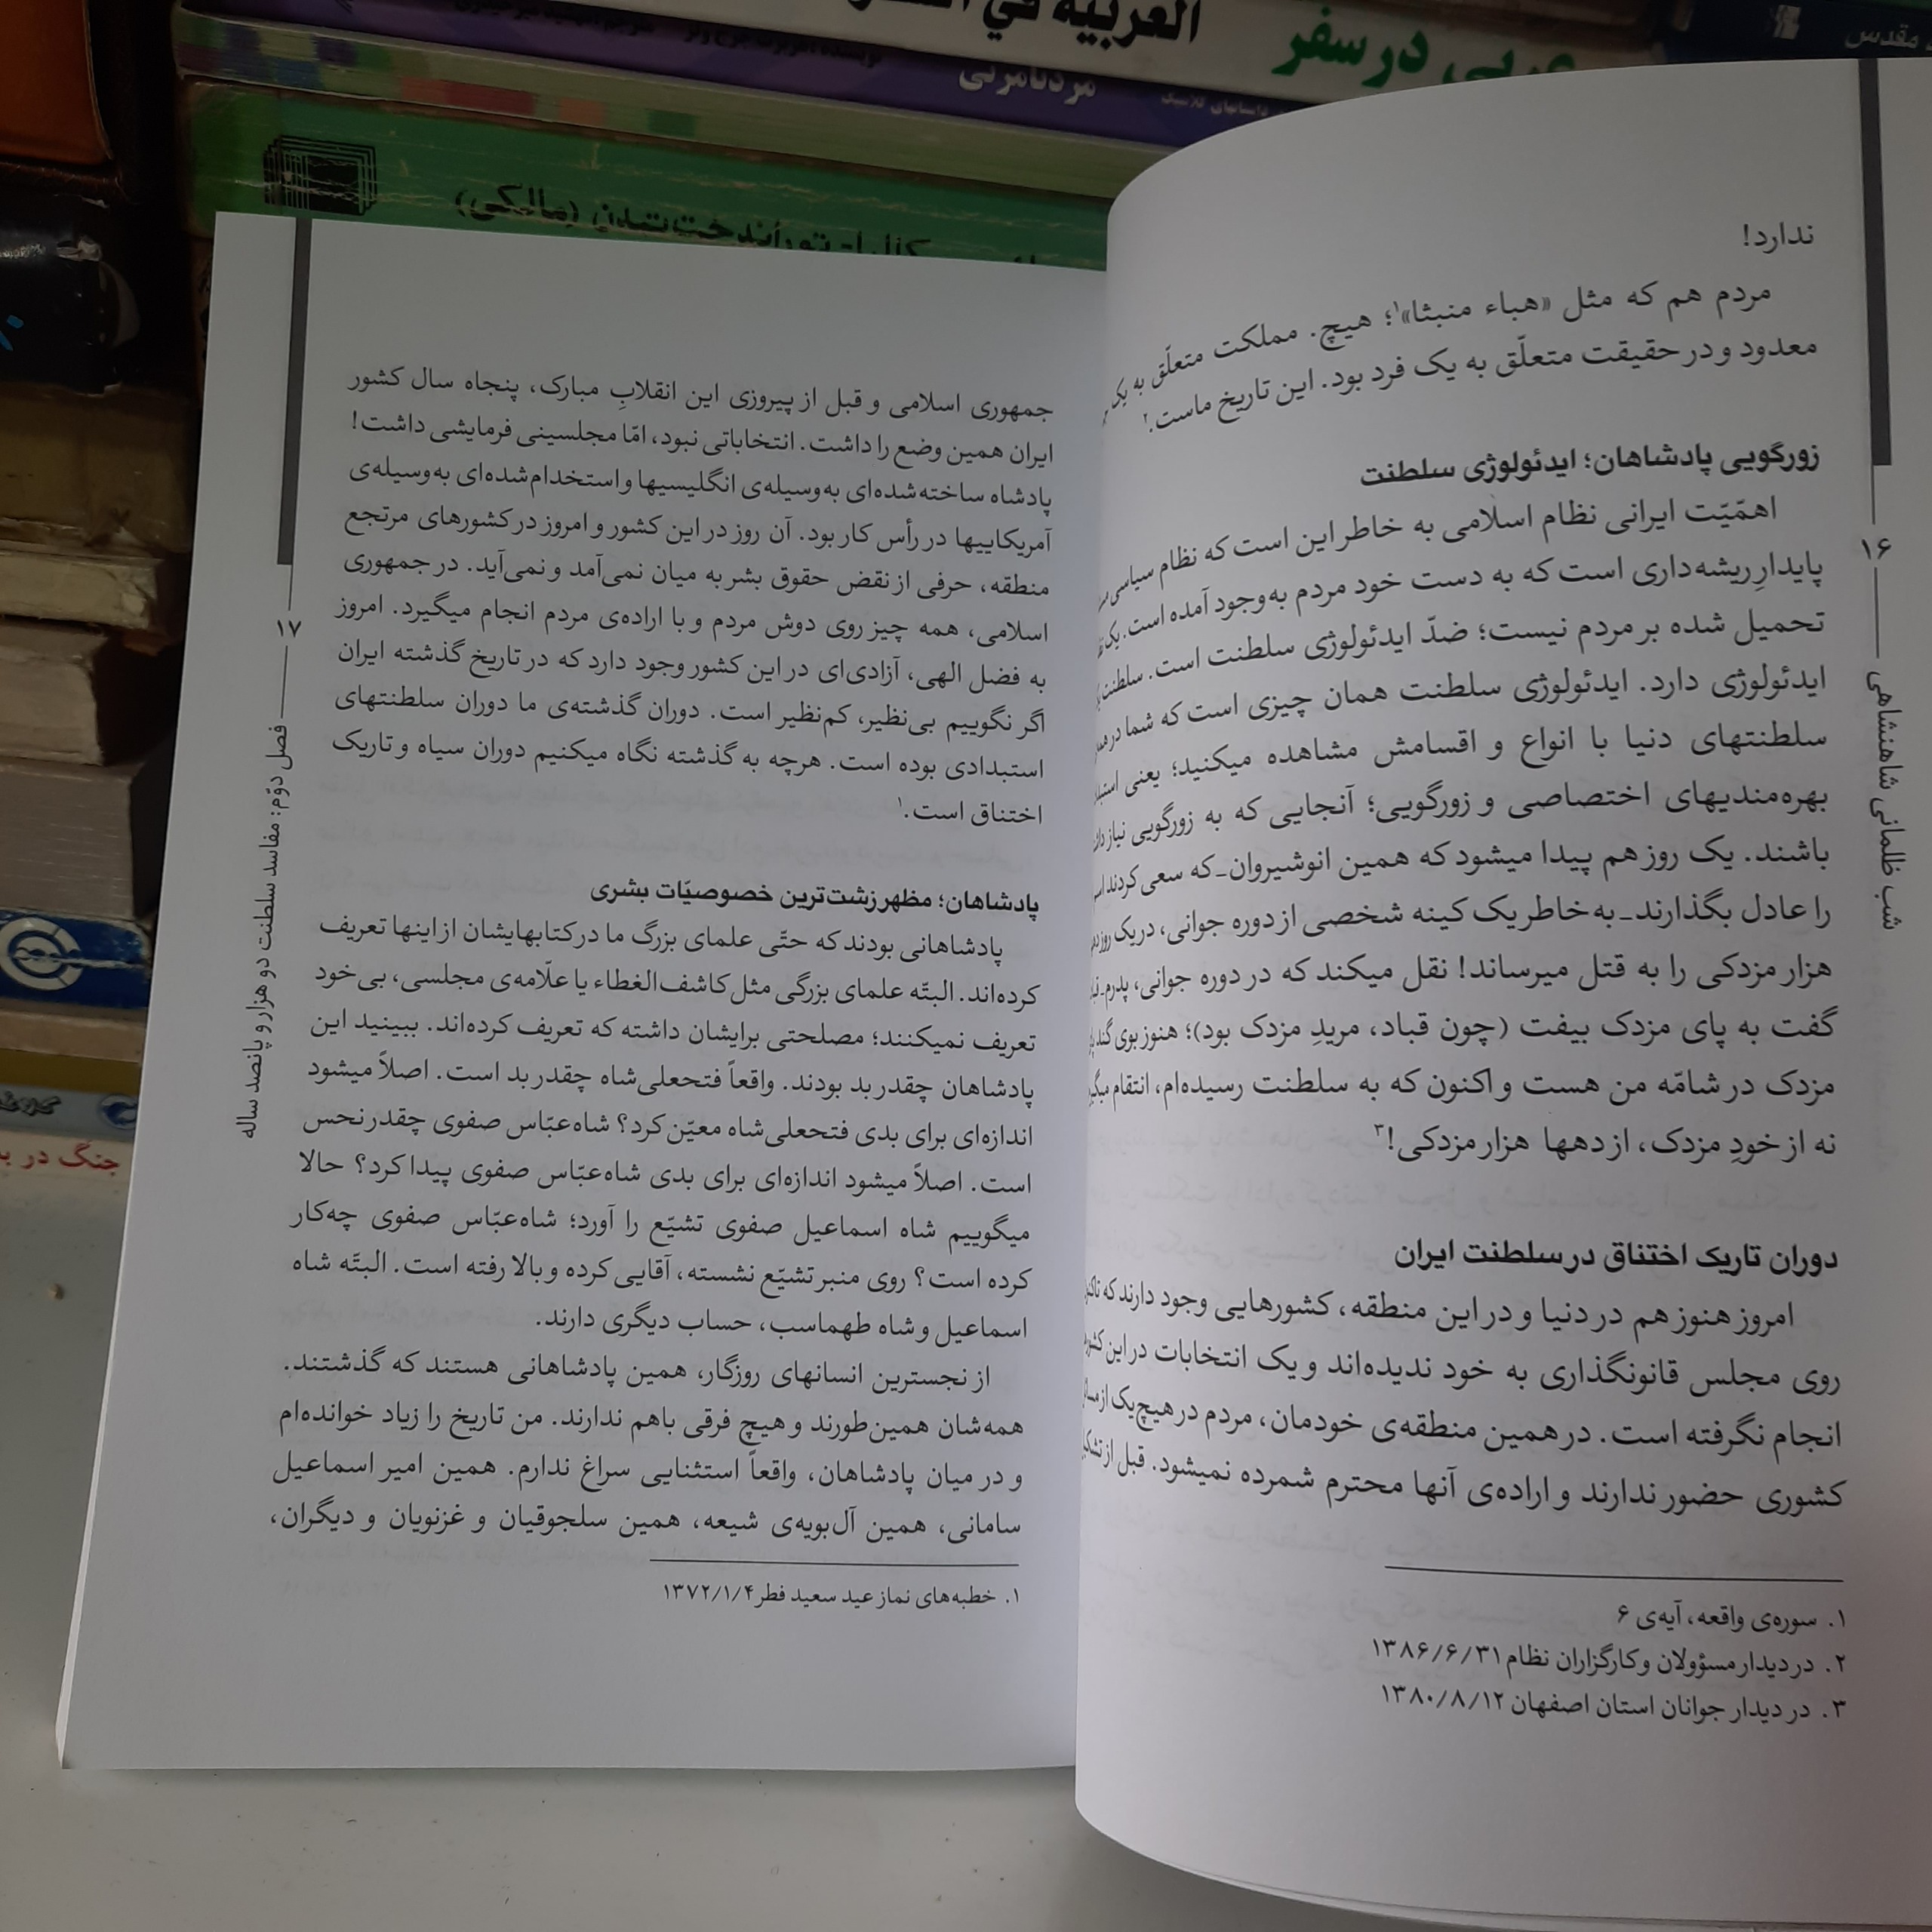 العربية في السفر
عربی در سفر
مقدس
مردنامرئی
داستانهای کلاسیک
توراندخت تمدن (مالکی)
جنگ در
ندارد!
مردم هم که مثل «هباء منبثا»۱؛ هیچ. مملکت متعلّق به یک
معدود و در حقیقت متعلّق به یک فرد بود. این تاریخ ماست.۲
زورگویی پادشاهان؛ ایدئولوژی سلطنت
اهمّیّت ایرانی نظام اسلامی به خاطر این است که نظام سیاسی
پایدارِ ریشه‌داری است که به دست خود مردم به‌وجود آمده است. یک
تحمیل شده بر مردم نیست؛ ضدّ ایدئولوژی سلطنت است. سلطنت
ایدئولوژی دارد. ایدئولوژی سلطنت همان چیزی است که شما در
سلطنتهای دنیا با انواع و اقسامش مشاهده میکنید؛ یعنی
بهره‌مندیهای اختصاصی و زورگویی؛ آنجایی که به زورگویی نیاز
باشند. یک روز هم پیدا میشود که همین انوشیروان_که سعی کردند
را عادل بگذارند_به خاطر یک کینه شخصی از دوره جوانی، در یک روز
هزار مزدکی را به قتل میرساند! نقل میکند که در دوره جوانی، پدرم
گفت به پای مزدک بیفت (چون قباد، مریدِ مزدک بود)؛ هنوز بوی گند
مزدک در شامّه من هست و اکنون که به سلطنت رسیده‌ام، انتقام
نه از خودِ مزدک، از دهها هزار مزدکی!۳
دوران تاریک اختناق در سلطنت ایران
امروز هنوز هم در دنیا و در این منطقه، کشورهایی وجود دارند که
روی مجلس قانونگذاری به خود ندیده‌اند و یک انتخابات در این
انجام نگرفته است. در همین منطقه‌ی خودمان، مردم در هیچ‌یک از
کشوری حضور ندارند و اراده‌ی آنها محترم شمرده نمیشود. قبل از
۱. سوره‌ی واقعه، آیه‌ی ۶
۲. در دیدار مسؤولان و کارگزاران نظام ۱۳۸۶/۶/۳۱
۳. در دیدار جوانان استان اصفهان ۱۳۸۰/۸/۱۲
۱۶
شب ظلمانی شاهنشاهی
جمهوری اسلامی و قبل از پیروزی این انقلابِ مبارک، پنجاه سال کشور
ایران همین وضع را داشت. انتخاباتی نبود، امّا مجلسینی فرمایشی داشت!
پادشاه ساخته‌شده‌ای به‌وسیله‌ی انگلیسیها و استخدام‌شده‌ای به‌وسیله‌ی
آمریکاییها در رأس کار بود. آن روز در این کشور و امروز در کشورهای مرتجع
منطقه، حرفی از نقض حقوق بشر به میان نمی‌آمد و نمی‌آید. در جمهوری
اسلامی، همه چیز روی دوش مردم و با اراده‌ی مردم انجام میگیرد. امروز
به فضل الهی، آزادی‌ای در این کشور وجود دارد که در تاریخ گذشته ایران
اگر نگوییم بی‌نظیر، کم‌نظیر است. دوران گذشته‌ی ما دوران سلطنتهای
استبدادی بوده است. هرچه به گذشته نگاه میکنیم دوران سیاه و تاریک
اختناق است.۱
پادشاهان؛ مظهر زشت‌ترین خصوصیّات بشری
پادشاهانی بودند که حتّی علمای بزرگ ما در کتابهایشان از اینها تعریف
کرده‌اند. البتّه علمای بزرگی مثل کاشف‌الغطاء یا علّامه‌ی مجلسی، بی‌خود
تعریف نمیکنند؛ مصلحتی برایشان داشته که تعریف کرده‌اند. ببینید این
پادشاهان چقدر بد بودند. واقعاً فتحعلی‌شاه چقدر بد است. اصلاً میشود
اندازه‌ای برای بدی فتحعلی‌شاه معیّن کرد؟ شاه‌عبّاس صفوی چقدر نحس
است. اصلاً میشود اندازه‌ای برای بدی شاه‌عبّاس صفوی پیدا کرد؟ حالا
میگوییم شاه اسماعیل صفوی تشیّع را آورد؛ شاه‌عبّاس صفوی چه‌کار
کرده است؟ روی منبر تشیّع نشسته، آقایی کرده و بالا رفته است. البتّه شاه
اسماعیل و شاه طهماسب، حساب دیگری دارند.
از نجسترین انسانهای روزگار، همین پادشاهانی هستند که گذشتند.
همه‌شان همین‌طورند و هیچ فرقی باهم ندارند. من تاریخ را زیاد خوانده‌ام
و در میان پادشاهان، واقعاً استثنایی سراغ ندارم. همین امیر اسماعیل
سامانی، همین آل‌بویه‌ی شیعه، همین سلجوقیان و غزنویان و دیگران،
۱. خطبه‌های نماز عید سعید فطر ۱۳۷۲/۱/۴
۱۷
فصل دوّم: مفاسد سلطنت دو هزار و پانصد ساله